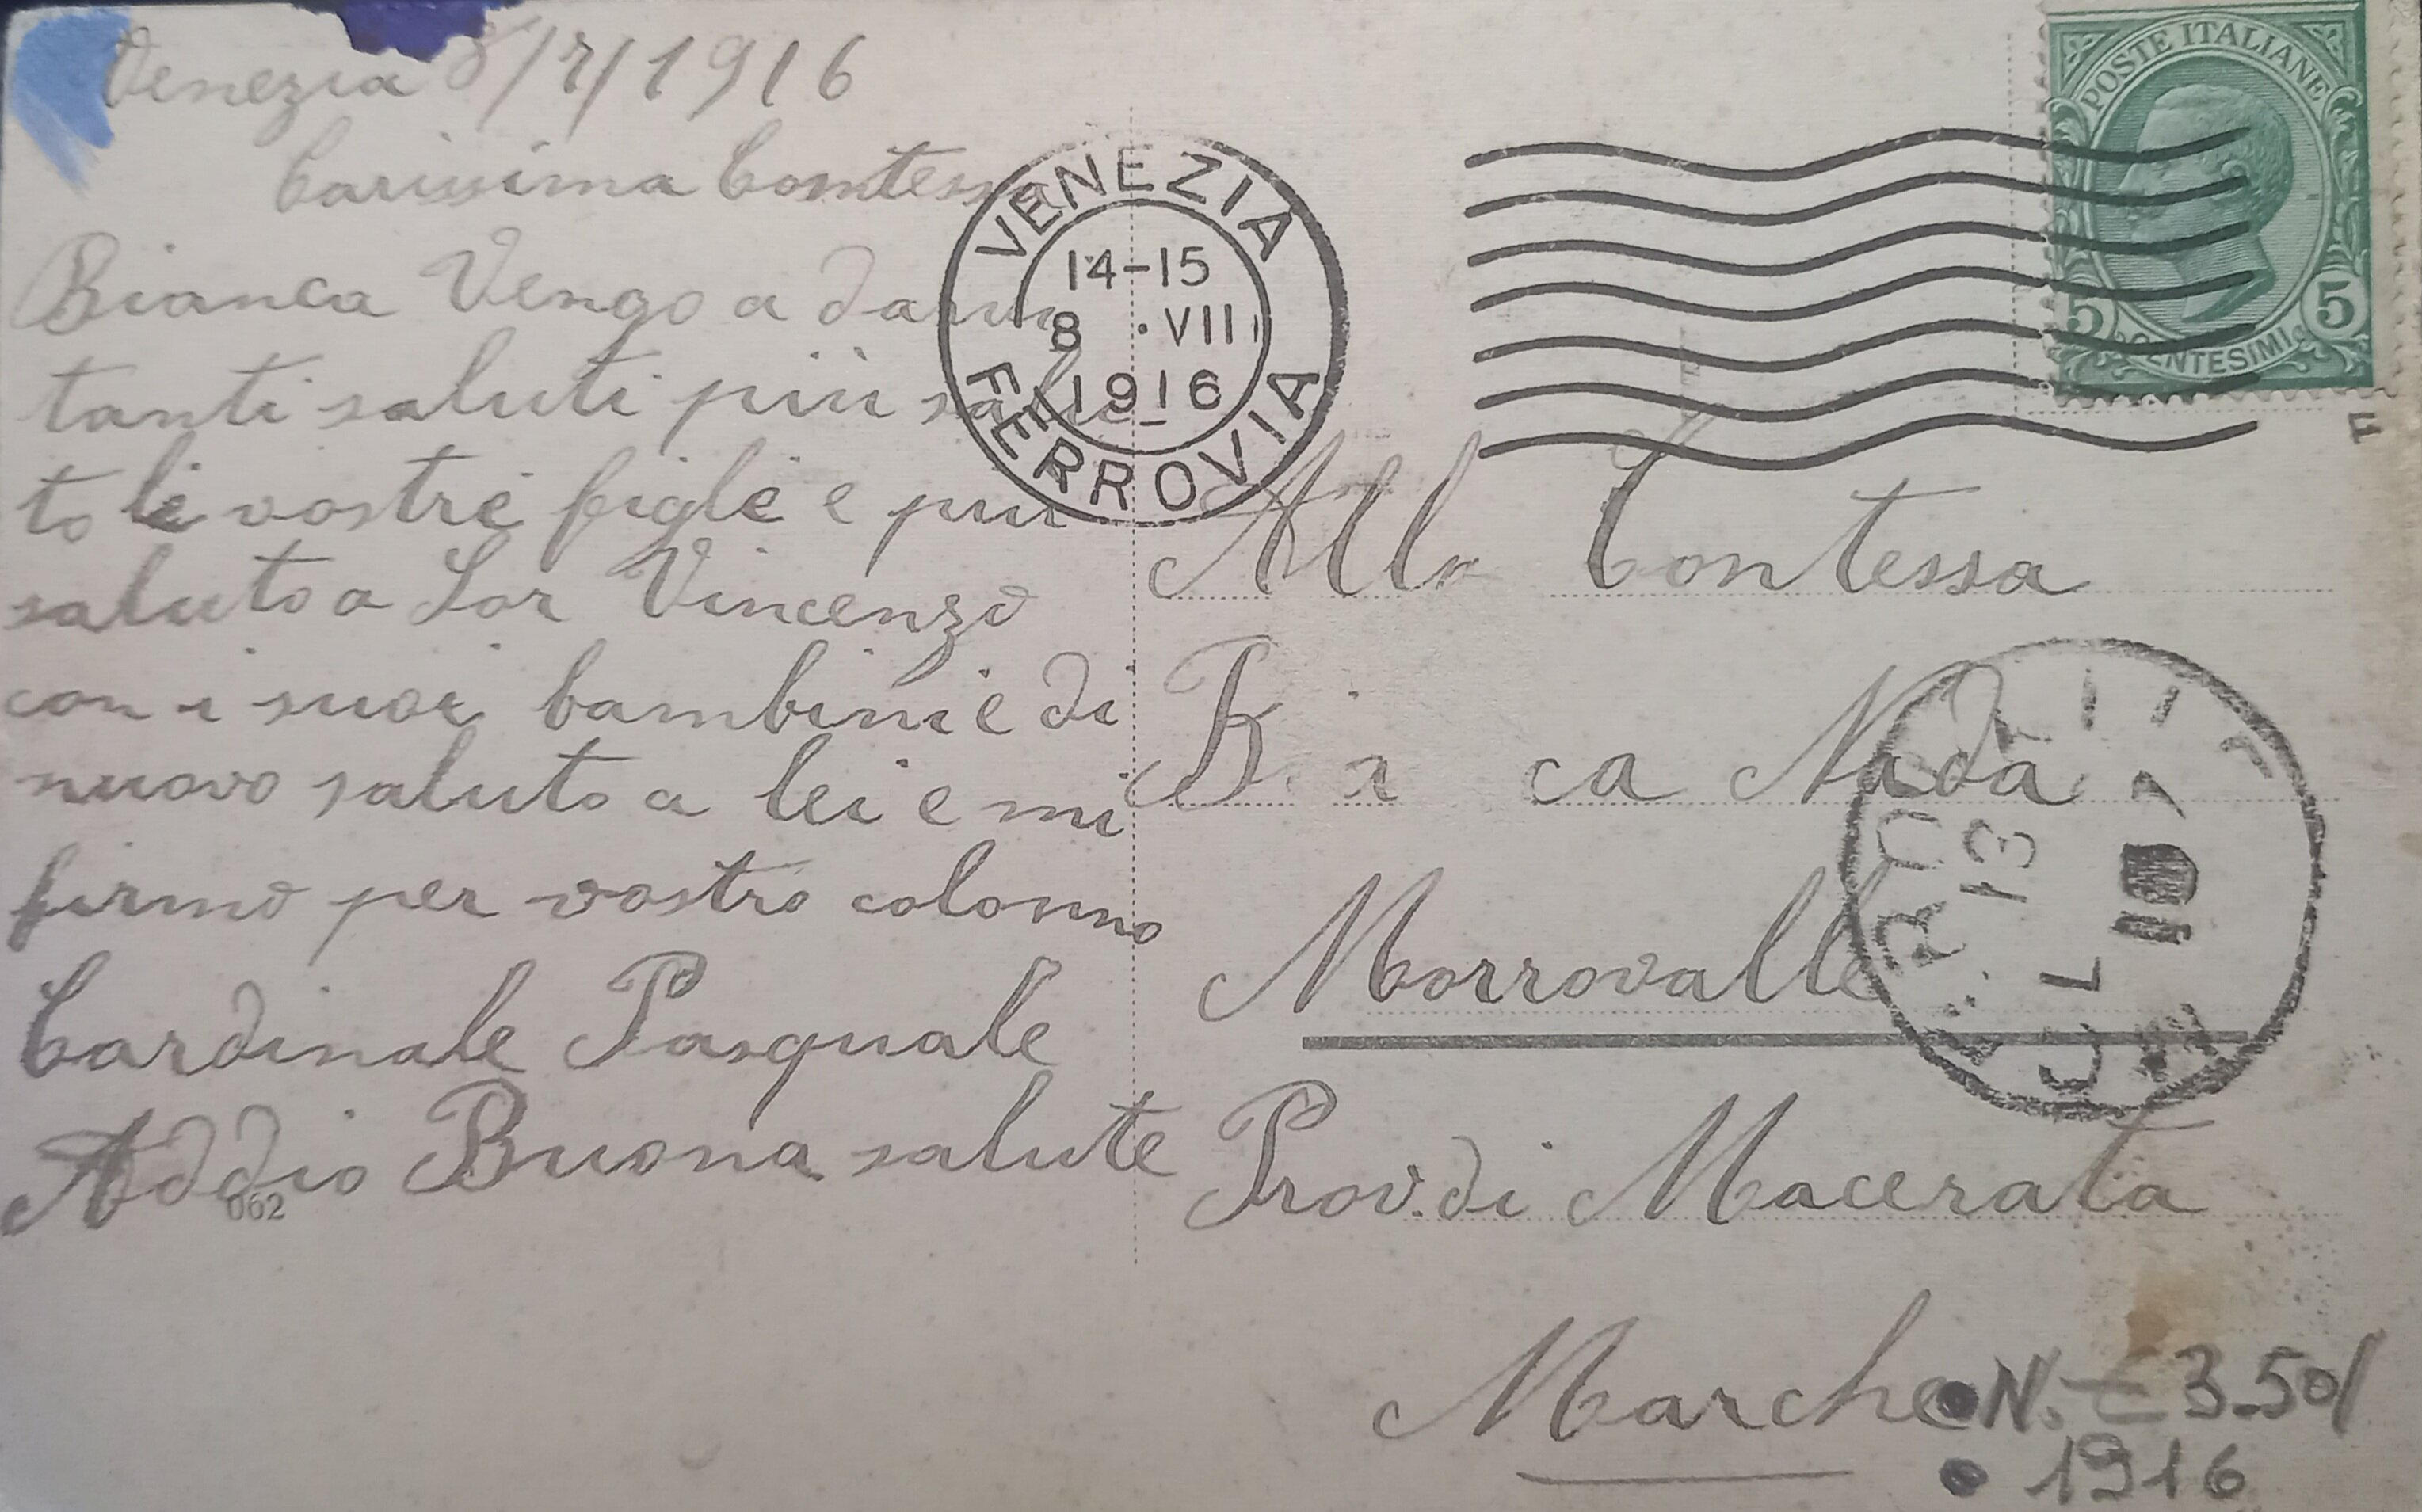 Venezia 8/7/1916
Carissima Contessa
Bianca Vengo a darvi
tanti saluti più salu
to le vostre figle e più
saluto a Sor Vincenzo
con i suoi bambini e di
nuovo saluto a lei e mi
firmo per vostro colonno
Cardinale Pasquale
Addio Buona salute
062
VENEZIA
14-15
8 · VII
1916
FERROVIA
POSTE ITALIANE
5 5
CENTESIMI
F
Alla Contessa
B i ca Nada
Morrovalle
Prov. di Macerata
Marche
N. € 3.50
1916
13